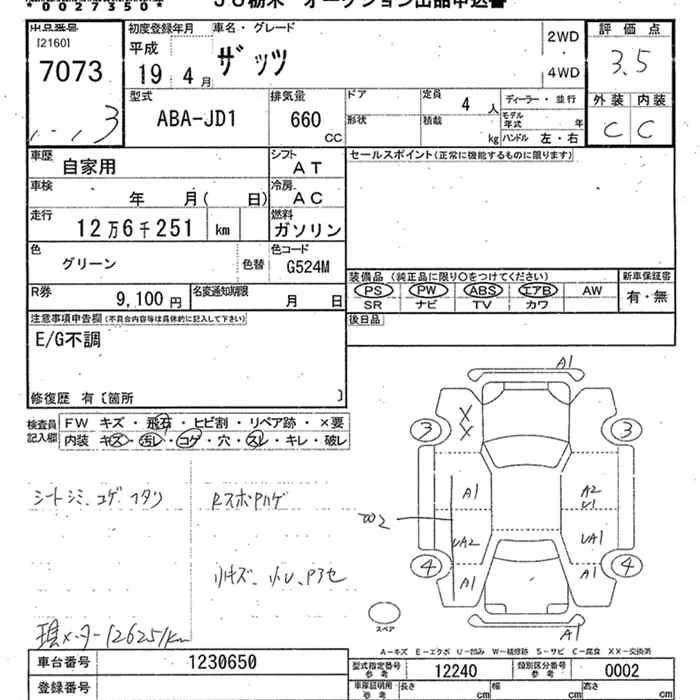 *0027350*
JU栃木 オークション出品申込書
出品番号
[2160]
7073
初度登録年月
平成
19 年 4 月
車名・グレード
ザッツ
2WD
・
4WD
評価点
3.5
外装 内装
C C
型式
ABA-JD1
排気量
660
CC
ドア
形状
定員
4 人
積載
kg
ディーラー・並行
モデル年式 年
ハンドル 左・右
車歴
自家用
シフト
AT
セールスポイント(正常に機能するものに限ります)
車検
年 月( 日)
冷房
AC
走行
12万6千251 km
燃料
ガソリン
色
グリーン
色替
色コード
G524M
装備品 (純正品に限り○をつけてください)
新車保証書
PS PW ABS エアB AW
SR ナビ TV カワ
有・無
R券
9,100 円
名変通知期限
月 日
後日品
注意事項申告欄(不具合内容等は具体的に記入して下さい)
E/G不調
修復歴 有〔箇所 〕
検査員記入欄
FW キズ・飛石・ヒビ割・リペア跡・×要
内装 キズ・汚レ・コゲ・穴・スレ・キレ・破レ
シートシミ、コゲ
小キズ、小U
現メーター126251km
A1
X
X
3
3
A1
A2
U1
W2
UA2
UA1
4
4
A1
A1
A1
スペア
A-キズ E-エクボ U-凹み W-補修跡 S-サビ C-腐食 XX-交換済
車台番号
1230650
登録番号
型式指定番号
参考
12240
類別区分番号
参考
0002
車庫証明用
参考
長さ cm
幅 cm
高さ cm